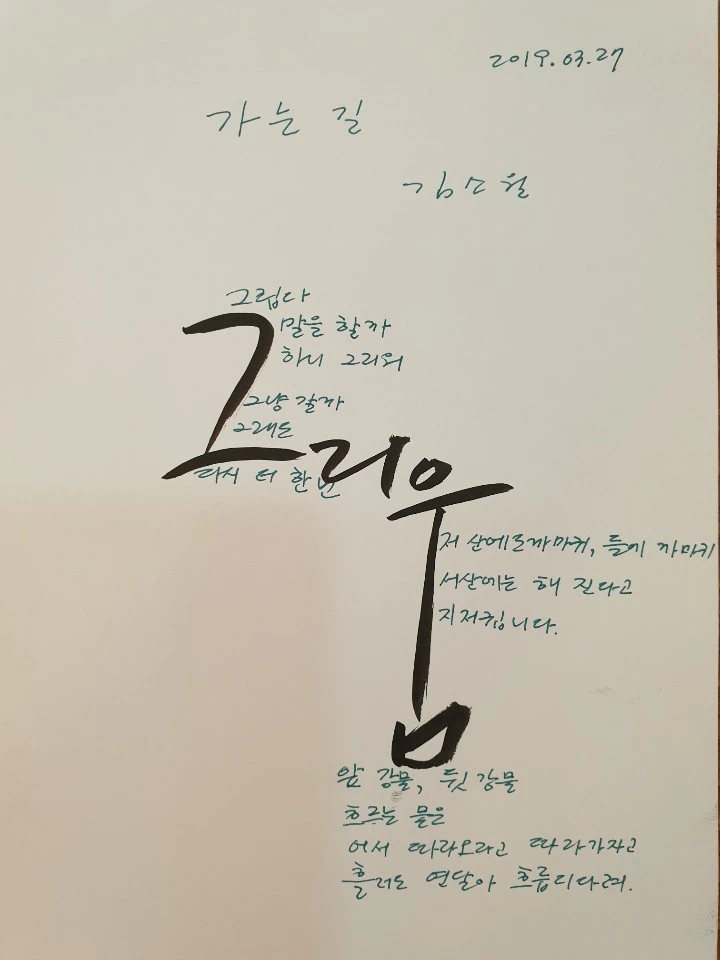 2019.03.27
가는 길
김소월
그립다
말을 할까
하니 그리워
그냥 갈까
그래도
다시 더 한번
그리움
저 산에도 까마귀, 들에 까마귀
서산에는 해 진다고
지저귑니다.
앞 강물, 뒷 강물
흐르는 물은
어서 따라오라고 따라가자고
흘러도 연달아 흐릅디다려.